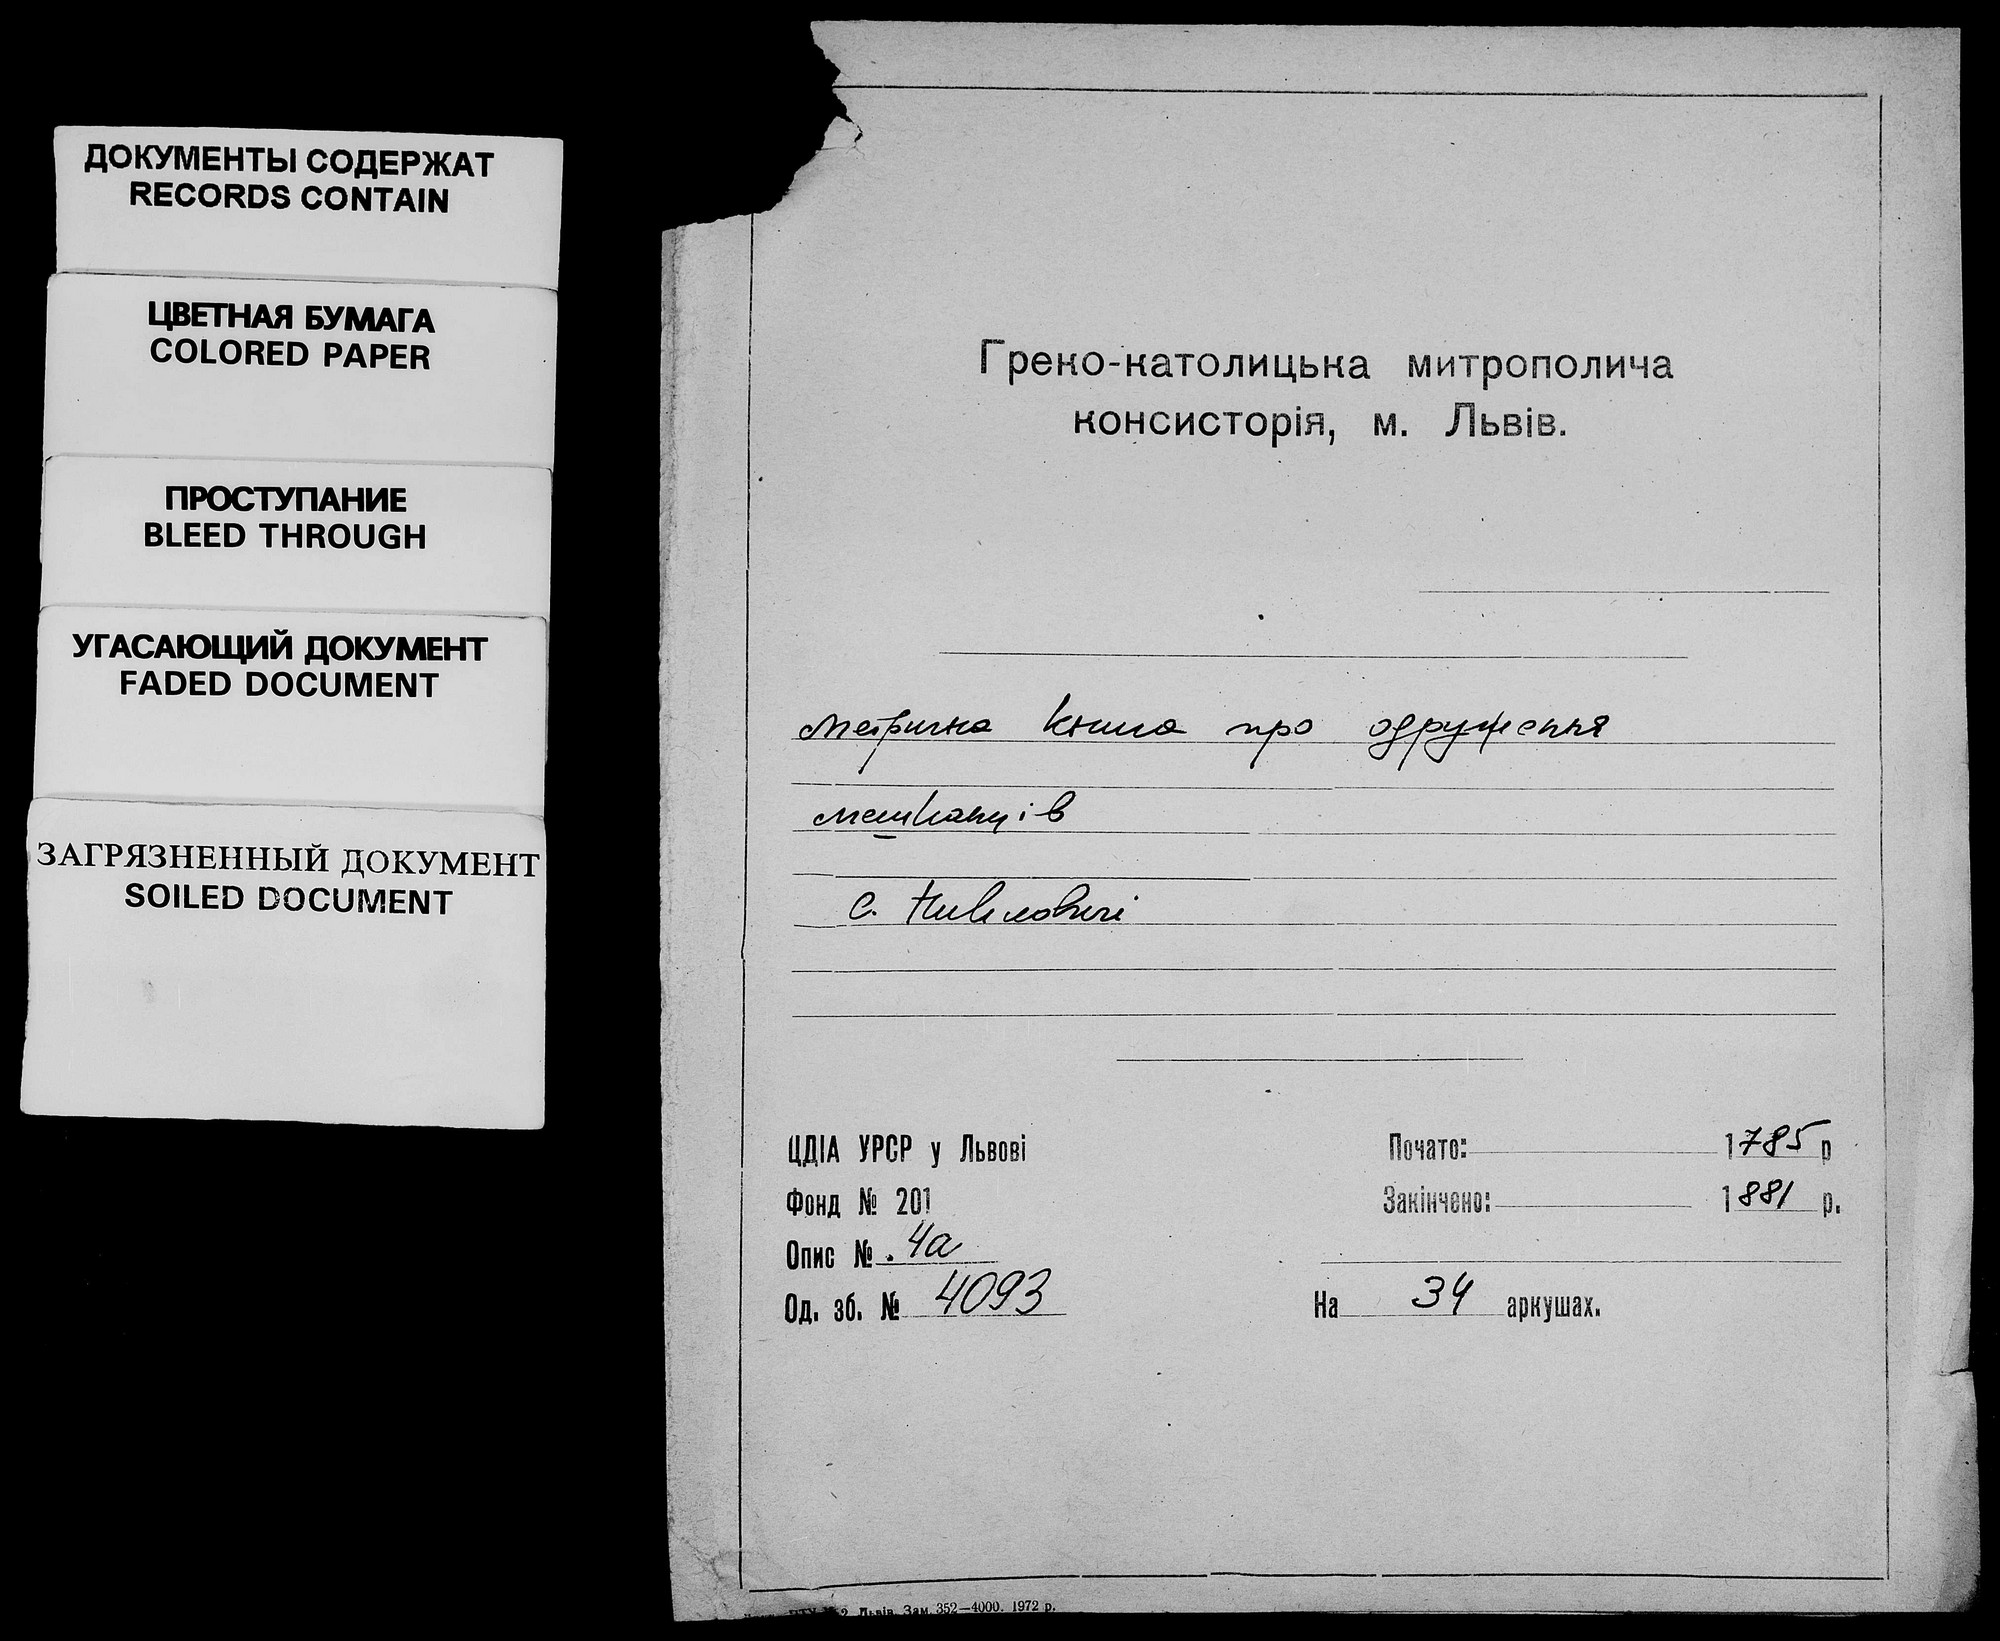 ДОКУМЕНТЫ СОДЕРЖАТ
RECORDS CONTAIN
ЦВЕТНАЯ БУМАГА
COLORED PAPER
ПРОСТУПАНИЕ
BLEED THROUGH
УГАСАЮЩИЙ ДОКУМЕНТ
FADED DOCUMENT
ЗАГРЯЗНЕННЫЙ ДОКУМЕНТ
SOILED DOCUMENT
Греко-католицька митрополича
консисторія, м. Львів.
Метрична книга про одруження
мешканців
с.
ЦДІА УРСР у Львові
Фонд № 201
Опис № 4а
Од. зб. № 4093
Почато: 1785 р
Закінчено: 1881 р.
На 34 аркушах.
2 Львів. Зам. 352—4000. 1972 р.